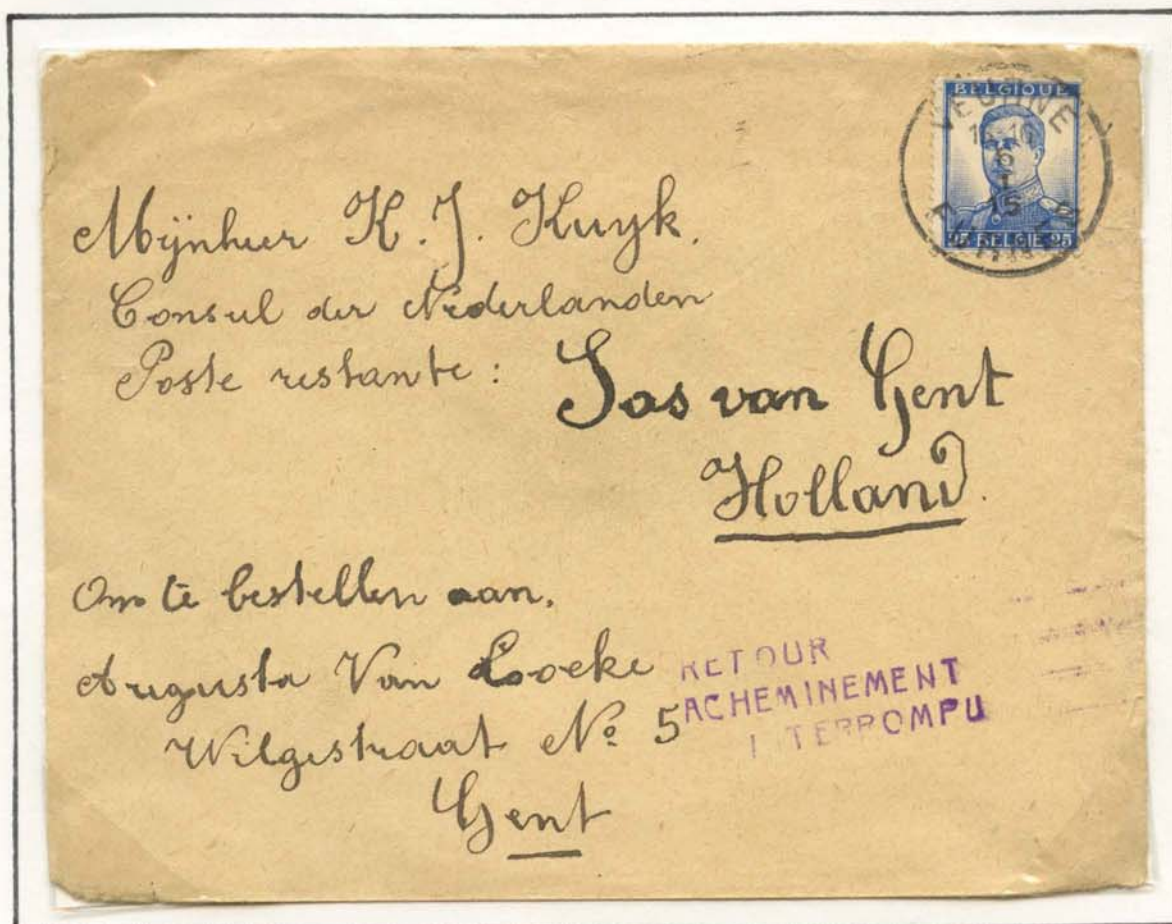 BELGIQUE
VEURNE
15-16
6
1
15
FURNES
25 BELGIE 25
Mijnheer K. J. Kuyk.
Consul der Nederlanden
Poste restante :
Sas van Gent
Holland.
Om te bestellen aan,
Augusta Van Loocke
Wilgestraat No 5
Gent
RETOUR
ACHEMINEMENT
I TERROMPU